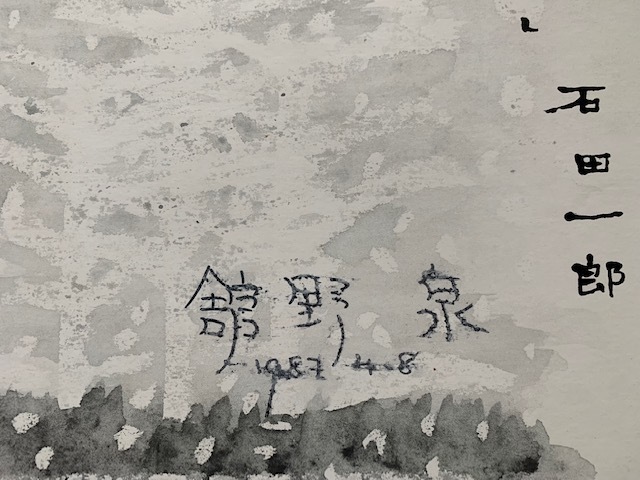 」
石田一郎
舘野 泉
1987 4.8